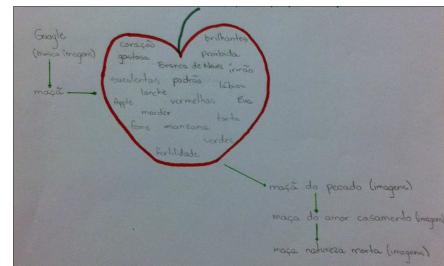 Google
(busca imagens)
maçã
coração
brilhantes
gostosa
proibida
Branca de Neve
irmão
suculentas
padrão
lábios
lanche
Apple
vermelhas
Eva
morder
torta
fome
manzana
verdes
fertilidade
maçã do pecado (imagens)
maça do amor casamento (imagens)
maça natureza morta (imagens)